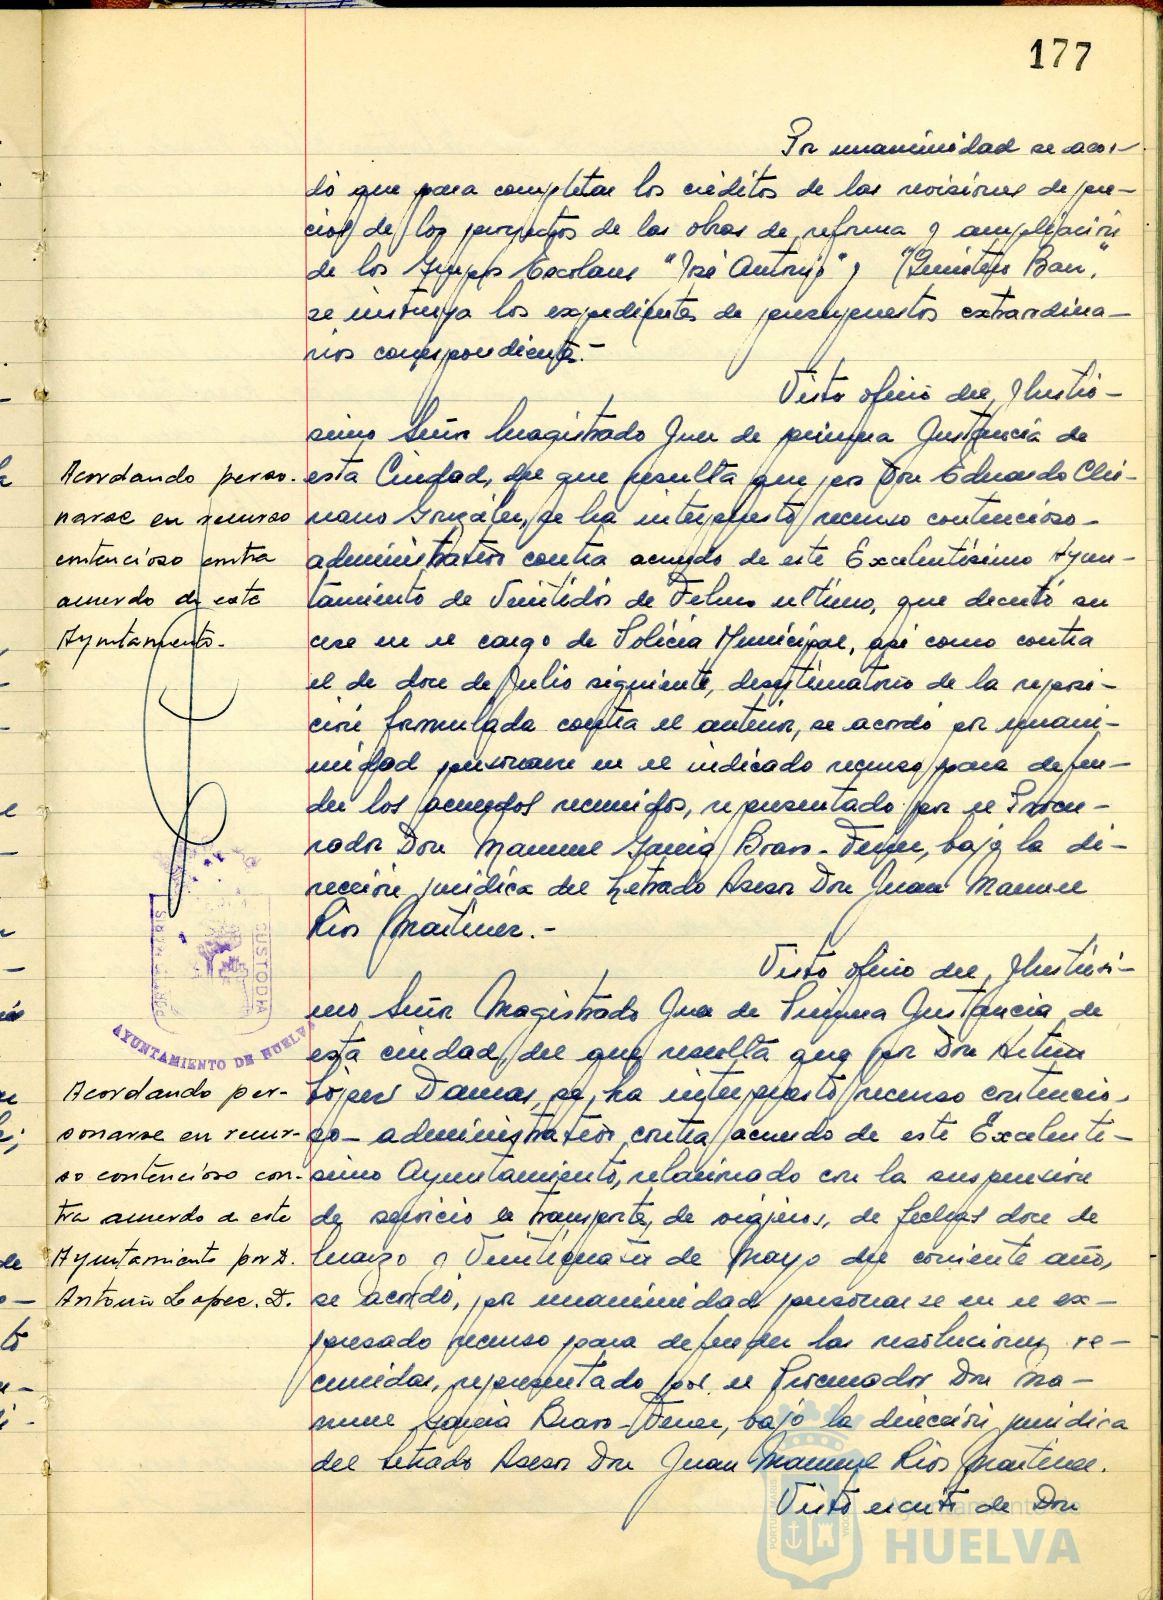 177
Por unanimidad se acor-
dó que para completar los créditos de las revisiones de pre-
cios de los proyectos de las obras de reforma y ampliación
de los Grupos Escolares "José Antonio" y "Quintero Baez",
se instruya los expedientes de presupuestos extraordina-
rios correspondientes.-
Visto oficio del Ilustrí-
simo Señor Magistrado Juez de primera Instancia de
Acordando perso-
narse en recurso
contencioso contra
acuerdo de este
Ayuntamiento.
esta Ciudad, del que resulta que por Don Eduardo
González, se ha interpuesto recurso contencioso-
administrativo contra acuerdo de este Excelentísimo Ayun-
tamiento de Veintidós de Febrero último, que decretó su
cese en el cargo de Policía Municipal, así como contra
el de doce de Julio siguiente, desestimatorio de la reposi-
ción formulada contra el anterior, se acordó por unani-
midad personarse en el indicado recurso para defen-
der los acuerdos recurridos, representado por el Procu-
rador Don Manuel García Bravo-Ferrer, bajo la di-
rección jurídica del Letrado Asesor Don Juan Manuel
Ríos Martínez.-
Visto oficio del Ilustrísi-
mo Señor Magistrado Juez de Primera Instancia de
esta ciudad, del que resulta que por Don
López Damas, se ha interpuesto recurso contencio-
so-administrativo contra acuerdo de este Excelentí-
simo Ayuntamiento, relacionado con la suspensión
de servicio de transporte de viajeros, de fechas doce de
Marzo y Veinticuatro de Mayo del corriente año,
se acordó, por unanimidad personarse en el ex-
presado recurso para defender las resoluciones re-
curridas, representado por el Procurador Don Ma-
nuel García Bravo-Ferrer, bajo la dirección jurídica
del Letrado Asesor Don Juan Manuel Ríos Martínez.
Visto escrito de Don
Acordando per-
sonarse en recur-
so contencioso con-
tra acuerdo de este
Ayuntamiento por D.
Antonio Lopez. D.
CUSTODIA
AYUNTAMIENTO DE HUELVA
Ayuntamiento de
HUELVA